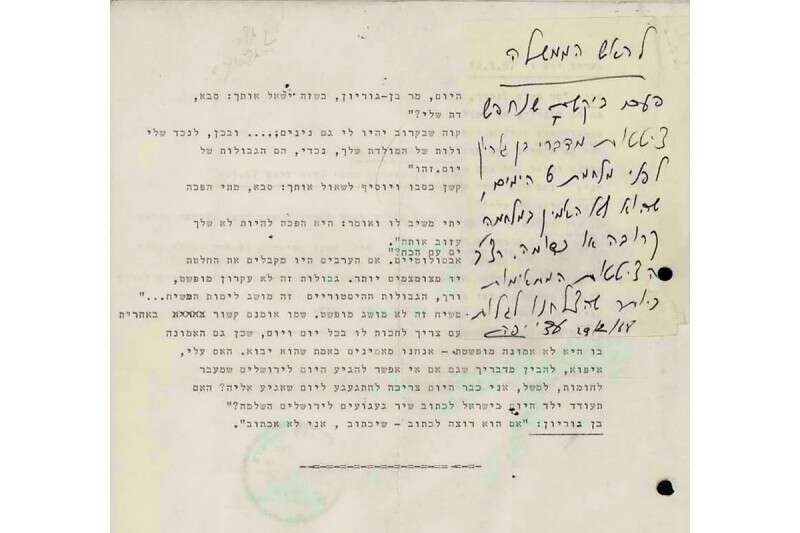 לראש הממשלה
פעם ביקשת שנחפש
ציטטות מדברי בן גוריון
לפני מלחמת 6 הימים,
שהוא לא האמין במלחמה
קרובה או כדומה. רצ"ב
הציטטות המתאימות
ביותר שהצלחנו לגלות.
היום, מר בן-גוריון, כשזה ישאל אותך: סבא,
דת שלי?"
קוה שבקרוב יהיו לי גם נינים;... ובכן, לנכד שלי
ולות של המולדת שלך, נכדי, הם הגבולות של
יום.זהו"
קשן כסבו ויוסיף לשאול אותך: סבא, מתי הפכה
יתי משיב לו ואומר: היא הפכה להיות לא שלך
עזוב אותה".
ים עם הכח?"
אבסולוטיים. אם הערבים היו מקבלים את החלטת
יו מצומצמים יותר. גבולות זה לא עקרון מופשט,
ורך, הגבולות ההיסטוריים זה מושג לימות המשיח..."
משיח זה לא מושג מופשט. שמו אומנם קשור באחרית
עם צריך לחכות לו בכל יום ויום, שכן גם האמונה
בו היא לא אמונה מופשטת - אנחנו מאמינים באמת שהוא יבוא. האם עלי,
איפוא, להבין מדבריך שגם אם אי אפשר להגיע היום לירושלים שמעבר
לחומות, למשל, אני כבר היום צריכה להתגעגע ליום שאגיע אליה? האם
תעודד ילד היום בישראל לכתוב שיר געגועים לירושלים השלמה?"
בן גוריון: "אם הוא רוצה לכתוב - שיכתוב , אני לא אכתוב".